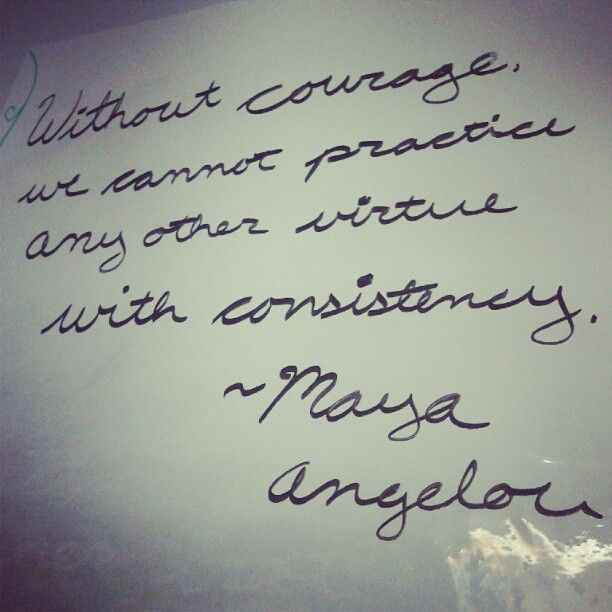 Without courage,
we cannot practice
any other virtue
with consistency.
~Maya
Angelou